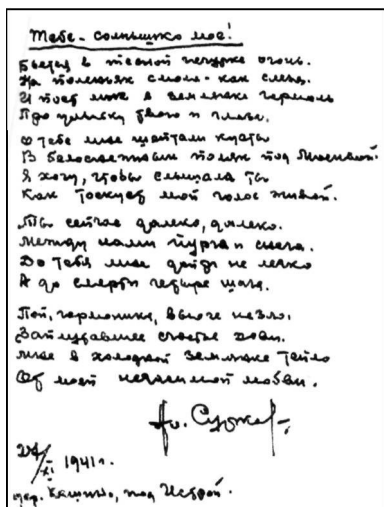 Тебе - солнышко мое!
Бьется в тесной печурке огонь.
На поленьях смола - как слеза.
И поет мне в землянке гармонь
Про улыбку твою и глаза.
О тебе мне шептали кусты
В белоснежных полях под Москвой.
Я хочу, чтобы слышала ты
Как тоскует мой голос живой.
Ты сейчас далеко, далеко.
Между нами пурга и снега.
До тебя мне дойти не легко
А до смерти четыре шага.
Пой, гармоника, вьюге назло.
Заплутавшее счастье зови.
Мне в холодной землянке тепло
От моей негасимой любви.
Ал. Сурков.
27/XI 1941 г.
дер. Кашино, под Истрой.